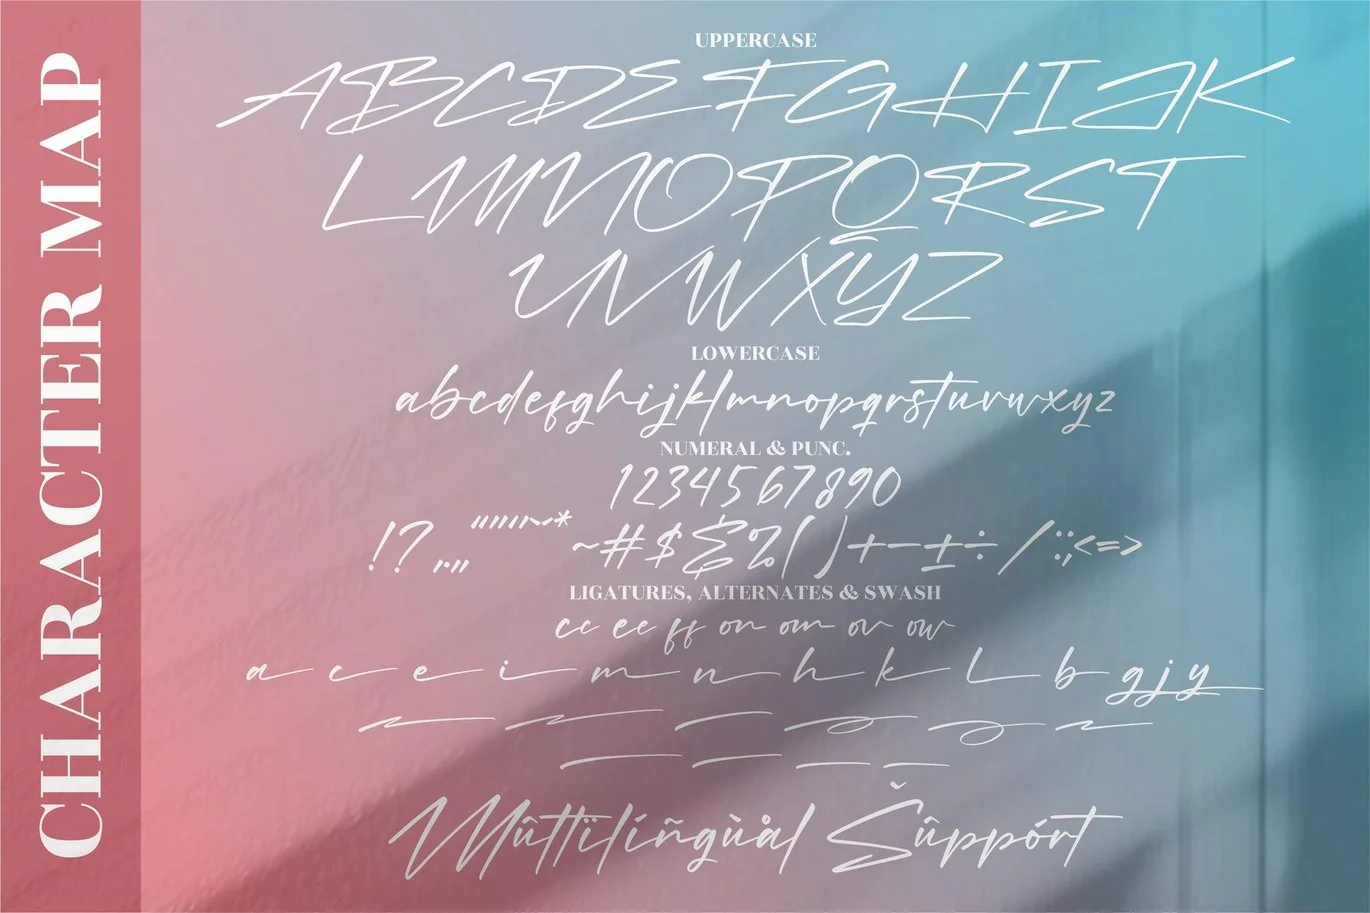 CHARACTER MAP
UPPERCASE
ABCDEFGHIJK
LMNOPQRST
UVWXYZ
LOWERCASE
abcdefghijklmnopqrstuvwxyz
NUMERAL & PUNC.
1234567890
!?.,,,""''~-* ~#$&%()+−±÷/:;<=>
LIGATURES, ALTERNATES & SWASH
cc ee ff on om ov ow
a c e i m n h k l b g j y
Mûttïlíñgùål Šûppórt